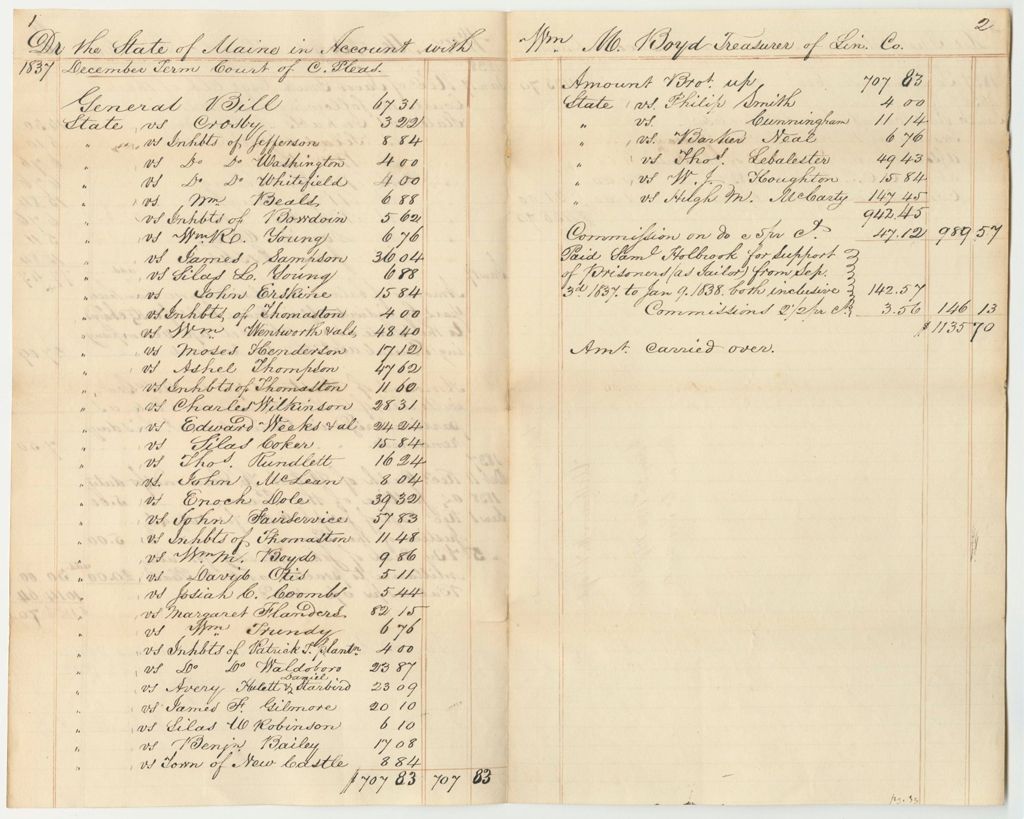 1
Dr The State of Maine in Account with
1837 December Term Court of C. Pleas.
General Bill 67 31
State vs Crosby 3 22
" vs Inhbts of Jefferson 8 84
" vs Do Do Washington 4 00
" vs Do Do Whitefield 4 00
" vs Wm Beals 6 88
" vs Inhbts of Bowdoin 5 62
" vs Wm K. Young 6 76
" vs James Sampson 36 04
" vs Silas L. Young 6 88
" vs John Erskine 15 84
" vs Inhbts, of Thomaston 4 00
" vs Wm Wentworth & als 48 40
" vs Moses Henderson 17 12
" vs Ashel Thompson 47 62
" vs Inhbts of Thomaston 11 60
" vs Charles Wilkinson 28 31
" vs Edward Weeks & al 24 24
" vs Silas Coker 15 84
" vs Thos. Rundlett 16 24
" vs John McLean 8 04
" vs Enoch Dole 39 32
" vs John Fairservice 57 83
" vs Inhbts of Thomaston 11 48
" vs Wm M. Boyd 9 86
" vs David Otis 5 11
" vs Josiah C. Coombs 5 44
" vs Margaret Flanders 82 15
" vs Wm Trundy 6 76
" vs Inhbts of Patrick T. Plantn 4 00
" vs Do Do Waldoboro 23 87
" vs Avery Hulett & Daniel Starbird 23 09
" vs James F. Gilmore 20 10
" vs Silas W Robinson 6 10
" vs Benjn Bailey 17 08
" vs Town of New Castle 8 84
$707 83 707 83
2
Wm M. Boyd Treasurer of Lin. Co.
Amount Brot. up 707 83
State vs. Philip Smith 4 00
" vs. Cunningham 11 14
" vs. Barker Neal 6 76
" vs Thos. Lebalester 49 43
" vs W. J. Houghton 15 84
" vs Hugh M. McCarty 147 45
942.45
Commission on do @ 5 pr Ct. 47.12 989 57
Paid Saml Holbrook for Support
of Prisoners (as Jailor) from Sep.
3d 1837. to Jan 9. 1838. both inclusive 142.57
Commissions 2 1/2 pr ct 3.56 146 13
$1135 70
Amt. carried over.